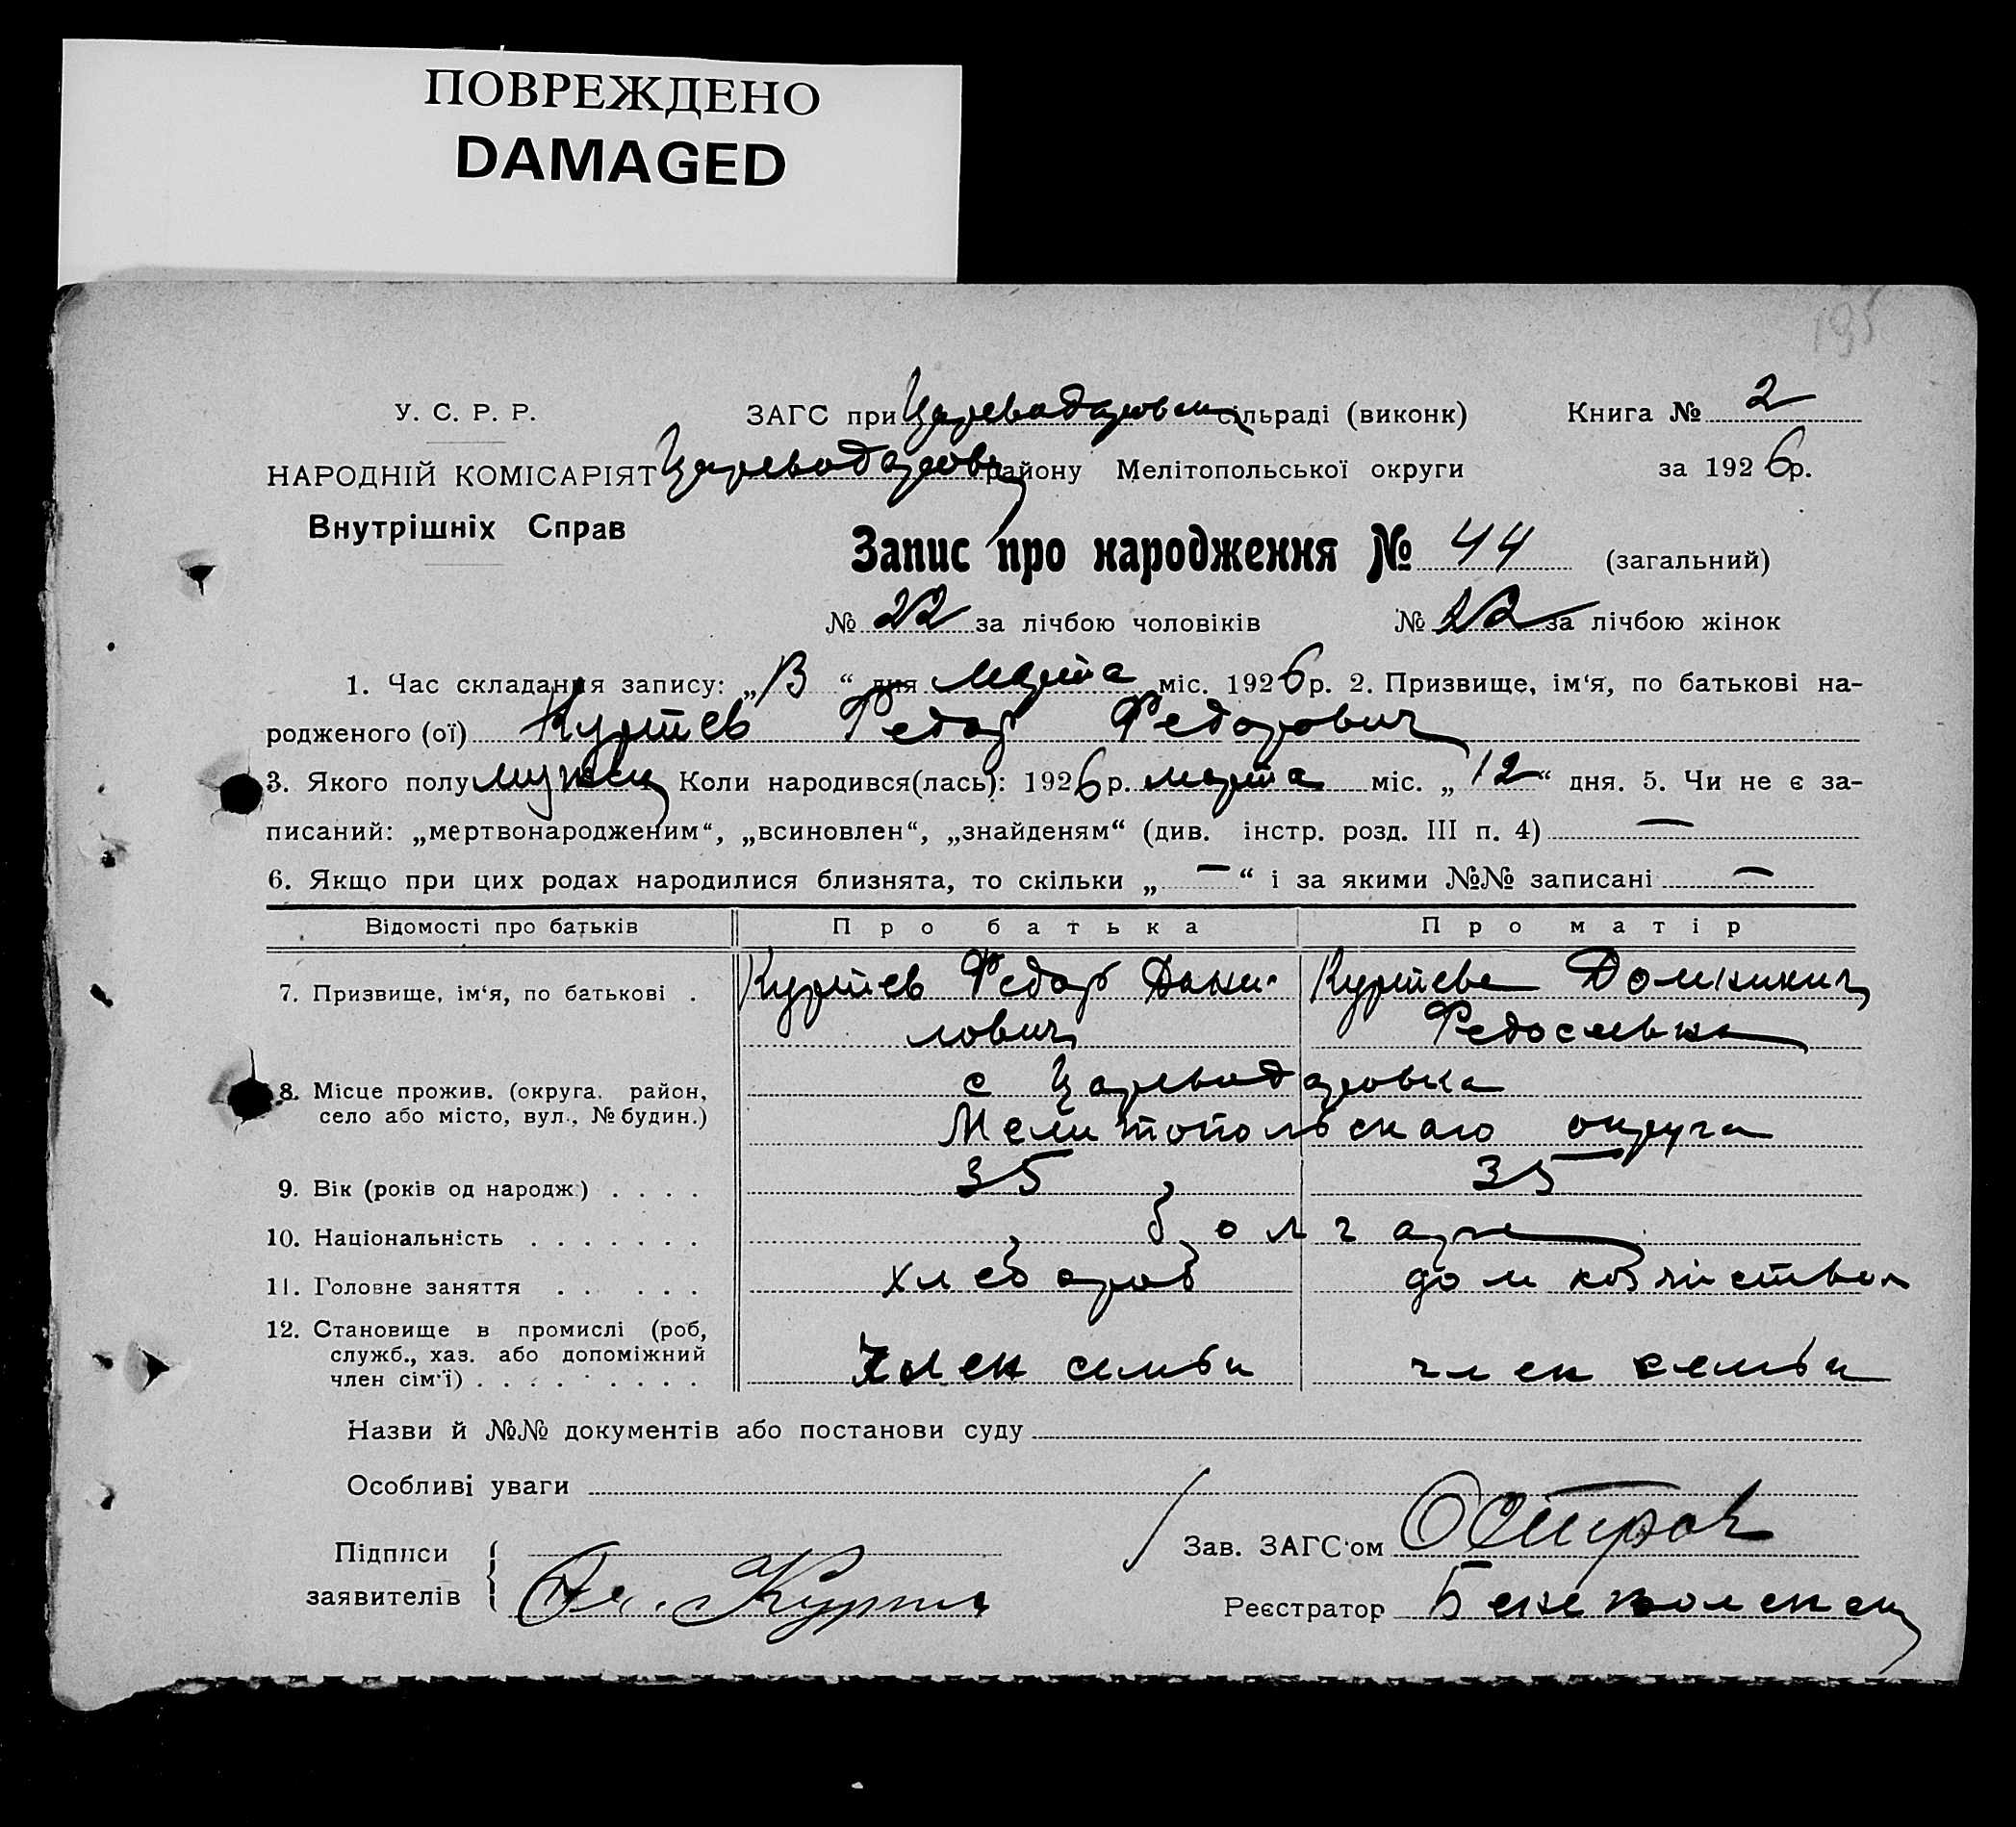 ПОВРЕЖДЕНО
DAMAGED
195
У. С. Р. Р.
ЗАГС при Царевадаровск сільраді (виконк) Книга № 2
НАРОДНІЙ КОМІСАРІЯТ Царевадаровск району Мелітопольської округи за 1926 р.
Внутрішніх Справ
Запис про народження № 44 (загальний)
№ 22 за лічбою чоловіків № 22 за лічбою жінок
1. Час складання запису: „13“ дня марта міс. 1926 р. 2. Призвище, ім‘я, по батькові на-
родженого (ої) Куртев Федор Федорович
3. Якого полу мужск Коли народився(лась): 1926 р. марта міс. „12“ дня. 5. Чи не є за-
писаний: „мертвонародженим“, „всиновлен“, „знайденям“ (див. інстр. розд. III п. 4) —
6. Якщо при цих родах народилися близнята, то скільки „—“ і за якими №№ записані —
Відомості про батьків Про батька Про матір
7. Призвище, ім‘я, по батькові . Куртев Федор Дани- Куртева Домникия
лович Федосеевна
8. Місце прожив. (округа, район, с Царевадаровка
село або місто, вул., № будин.) Мелитопольскаго округа
9. Вік (років од народж.) . . . . 35 35
10. Національність . . . . . . . болгаре
11. Головне заняття . . . . . хлебороб дом хозяйство
12. Становище в промислі (роб,
служб., хаз. або допоміжний
член сім‘ї) . . . . . . . . . член семьи член семьи
Назви й №№ документів або постанови суду
Особливі уваги
Підписи Зав. ЗАГС‘ом
заявителів Реєстратор